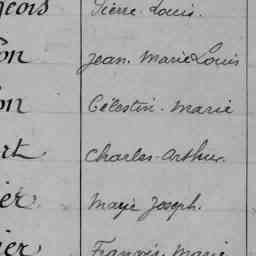 geois Pierre-Louis.
on Jean Marie Louis
on Célestin-Marie
rt Charles-Arthur.
ier Marie Joseph.
ier François Marie